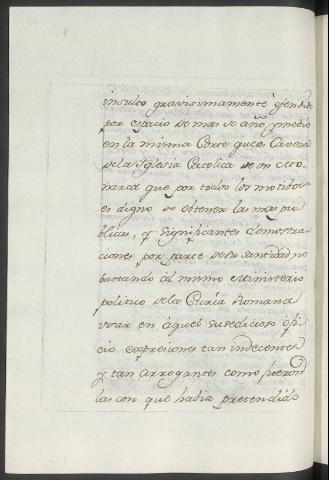 insulto gravisimamente ofendido
por espacio de mas de año, y medio
en la misma Corte que es Cavera
de la Yglesia Catolica de un Mo
narca que por todos los motibos
es digno de obtener las mas pu
blicas, y significantes demostra
ciones por parte de su santidad, no
bastando al mismo Ministerio
politico de la Curia Romana
usar en aquel suredicioso ofi
cio expresiones tan indecentes
y tan arrogantes como fueron
las con que habia pretendido